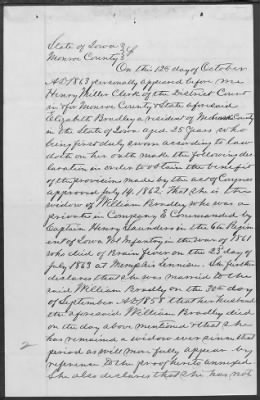 State of Iowa
Monroe County } ss
On this 12th day of October
A.D. 1863 personally appeared before me
Henry Miller Clerk of the District Court
in & for Monroe County & State aforesaid
Elizabeth Bradley a resident of Monroe County
in the State of Iowa aged 25 years who
being first duly sworn according to law
doth on her oath make the following dec
laration in order to obtain the benefit
of the provision made by the act of Congress
approved July 14, 1862. That she is the
widow of William Bradley who was a
private in Company E Commanded by
Captain Henry Saunders in the 6th Regim
ent of Iowa Vol Infantry in the war of 1861
who died of Brain fever on the 23d day of
July 1863 at Memphis Tennessee. She further
declares that she was married to the
said William Bradley on the 30th day
of September A.D. 1858 that her husband
the aforesaid William Bradley died
on the day above mentioned & that she
has remained a widow ever since that
period as will more fully appear by
reference to the proof hereto annexed
She also declares that she has not
2